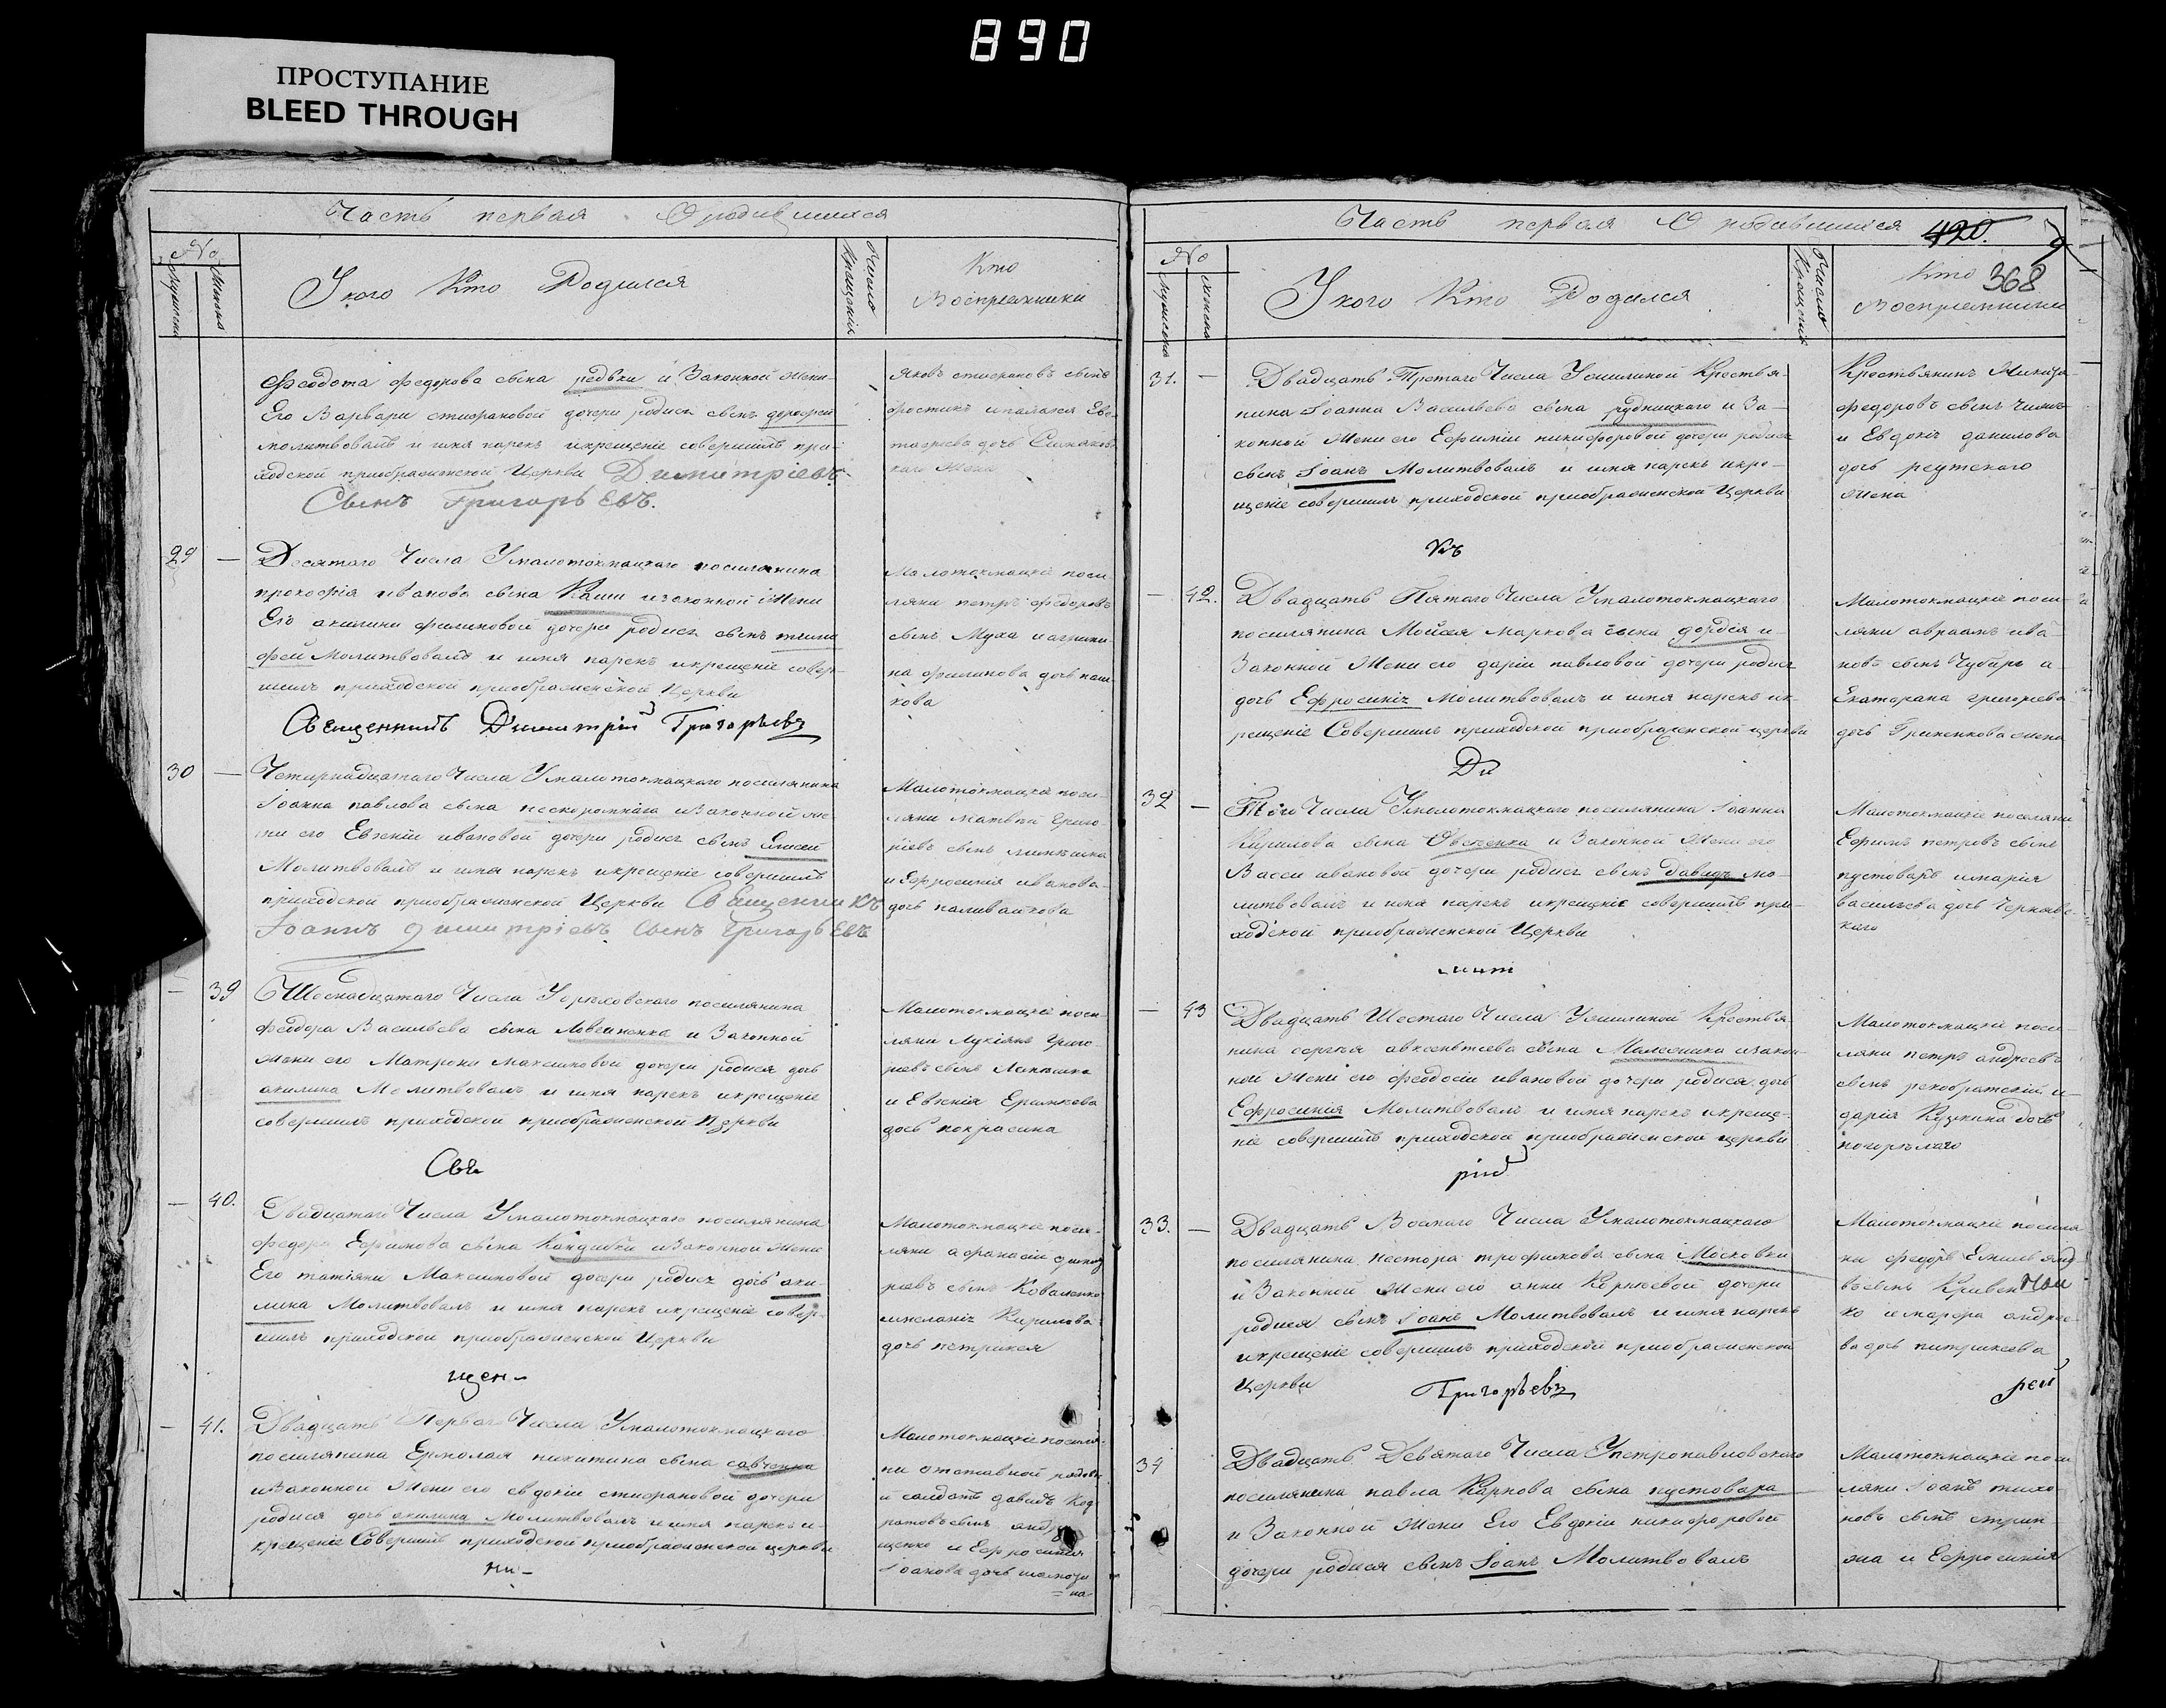 890
ПРОСТУПАНИЕ
BLEED THROUGH
Часть первая О родившихся
No
У кого Кто Родился
Число Крещенія
Кто
Воспріемники
Феодота федорова сына редьки и Законной жени
Его Варвари стефановой дочери родися сынъ дорофей
молитвовалъ и имя нарекъ икрещеніе совершилъ при-
ходской приображенской Церкви Димитріевъ
Сынъ Григорьевъ.
Яковъ стефановъ сынъ
29 —
Десятого Числа Умалотокмацкаго поселянина
прокофія иванова сына Каши изаконной Жени
Его акилини филиповой дочери родися сынъ тимо
фей Молитвовалъ и имя нарекъ икрещеніе совер-
шилъ приходской приображенской Церкви
Священникъ Димитрій Григорьевъ
Малотокмацкіе посе-
ляни петръ федоровъ
сынъ Муха и агрипи-
на филипова дочь паш-
кова
30 —
Четирнадцатаго Числа Умалотокмацкаго поселянина
Іоанна павлова сына нескоромнаго изаконной же
ни его Евгеніи ивановой дочери родися сынъ Елисей
Молитвовалъ и имя нарекъ икрещеніе совершилъ
приходской приображенской Церкви Священникъ
Іоаннъ димитріевъ Сынъ Григорьевъ
Малотокмацкіе посе-
ляни матвій Григо-
ріевъ сынъ
и Ефросинія иванова
дочь паливайкова
— 39
Шеснадцатаго Числа Уорѣховскаго поселянина
феодора Васильева сына Ловейненка и Законной
жени его Матрони максимовой дочери родися дочь
акилина Молитвовалъ и имя нарекъ икрещеніе
совершилъ приходской приображенской Церкви
Свя
Малотокмацкіе посе-
ляни Лукіянъ Григо-
ріевъ сынъ
и Евгенія Ермикова
дочь покрасина
— 40.
Двадцатаго Числа Умалотокмацкаго поселянина
федора Ефимова сына Кандибки изаконной жени
Его татіяни Максимовой дочери родися дочь аки-
лина Молитвовалъ и имя нарекъ икрещеніе совер-
шилъ приходской приображенской Церкви
щен-
Малотокмацкіе посе-
ляни афанасій
ріевъ сынъ Коваленко
имеланія Кирилова
дочь петрикея
— 41.
Двадцать Перваго Числа Умалотокмацкаго
поселянина Ермолая никитина сына савченка
изаконной Жени его евдокіи стефановой дочери
родися дочь акилина Молитвовалъ и имя нарекъ и
крещеніе Совершилъ приходской приображенской церкви
ни-
Малотокмацкіе поселя-
ни отставной рядовы
й салдатъ давидъ Код
ратовъ сынъ
щенко и Ефросинія
Іоанова дочь
на
Часть первая О родившихся
420.
368
No
У кого Кто Родился
Число Крещенія
Кто
Воспріемники
31. —
Двадцать Третаго Числа Уишлиной Крестья-
нина Іоанна Васильева сына рудницкаго и За-
конной Жени его Ефиміи никифоровой дочери родися
сынъ Іоанъ Молитвовалъ и имя нарекъ икре-
щеніе совершилъ приходской приображенской Церкви
къ
Крестьянинъ Микита
федоровъ сынъ
и Евдокія данилова
дочь реутскаго
Жена
— 42.
Двадцать Пятаго Числа Умалотокмацкаго
поселянина Мойсея маркова сына гордія и
Законной Жени его даріи павловой дочери родися
дочь Ефросинія Молитвовалъ и имя нарекъ ик-
рещеніе Совершилъ приходской приображенской церкви
Ди
Малотокмацкіе посе-
ляни авраамъ ива-
новъ сынъ Чубарь а
Екатерана григорьева
дочь Гриненкова жена
32 —
Того Числа Умалотокмацкаго поселянина Іоанна
Кирилова сына Овсѣенка и Законной Жени его
Васси ивановой дочери родися сынъ Давидъ мо-
литвовалъ и имя нарекъ икрещеніе совершилъ при-
ходской приображенской Церкви
мит
Малотокмацкіе поселяни
Ефимъ петровъ сынъ
пустоваръ имарія
васильева дочь Чернявс-
каго
— 43
Двадцать Шестаго Числа Уишлиной Крестья-
нина сергѣя авксентіева сына Малеоника изакон-
ной Жени его феодосіи ивановой дочери родися дочь
Ефросинія Молитвовалъ и имя нарекъ икреще-
ніе совершилъ приходской приображенской церкви
рій
Малотокмацкіе посе-
ляни петръ андреевъ
сынъ и
дарія Кузмина дочь
погорѣлаго
33. —
Двадцать Восмаго Числа Умалотокмацкаго
поселянина нестора трофимова сына Московки
и Законной Жени его анни Корніевой дочери
родися сынъ Іоанъ Молитвовалъ и имя нарекъ
икрещеніе совершилъ приходской приображенской
Церкви
Григорьевъ
Малотокмацкіе поселя
ни федоръ Емельяно
въ сынъ Кривен
ко имарфа андрее-
ва дочь питрикеева
рей
34
Двадцать Девятаго Числа Упетропавловскаго
поселянина павла Карпова сына пустовара
и Законной Жени Его Евдокіи никифоровой
дочери родися сынъ Іоанъ Молитвовалъ
Малотокмацкіе посе
ляни Іоанъ тихо-
новъ сынъ стриж
жа и Ефросинія